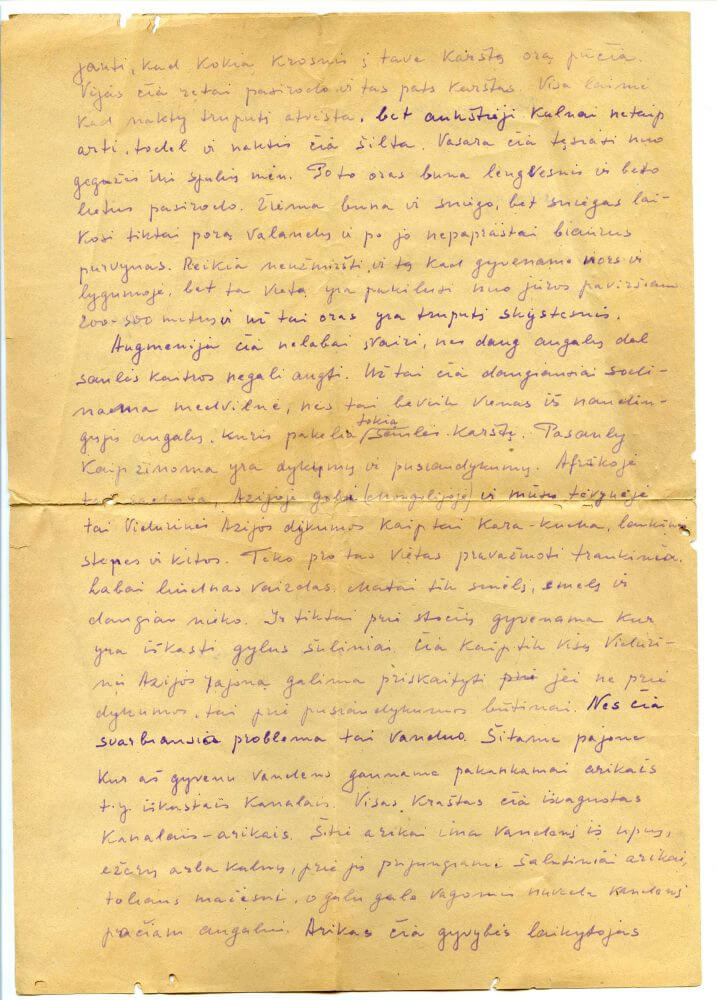 jausti, kad kokia krosnis į tave karštą orą pučia.
Vėjas čia retai pasirodo vi tas pats karštas. Visa laimė
kad naktį truputi atvėsta, bet aukštieji kalnai netaip
arti, todel vi naktis čia šilta. Vasara čia tęsiasi nuo
gegužės iki spalių mėn. Po to oras buna lengvesnis vi beto
lietus pasirodo. Žiema buna vi sniego, bet sniegas lai-
kosi tiktai porą valandų ir po jo nepaprastai biaurus
purvynas. Reikia neužmiršti vi tą kad gyvename nors vi
lygumoje, bet ta vieta yra pakilusi nuo jūros paviršiaus
200-500 metrų vi už tai oras yra truputi skystesnis.
Augmenija čia nelabai įvairi, nes daug augalų dėl
saulės kaitros negali augti. Už tai čia daugiausiai sodi-
nama medvilnė, nes tai beveik vienas iš naudin-
gųjų augalų, kuris pakelia tokią saulės karštį. Pasauly
kaip žinoma yra dykumų vi pusiaudykumų. Afrikoje
tai sachara, Azijoje gobi (Mongolijoje) vi mūsų tėvynėje
tai Vidurinės Azijos dykumos kaip tai Kara-kuma,
stepės vi kitos. Teko pro tas vietas pravažiuoti traukiniu.
Labai liudnas vaizdas. Matai tik smėlį, smėlį vi
daugiau nieko. Ir tiktai prie stočių gyvenama kur
yra iškasti gylus šuliniai. Čia kaip tik visą Viduri-
nės Azijos rajoną galima priskaityti prie jei ne prie
dykumos, tai prie pusiaudykumos būtinai. Nes čia
svarbiausia problema tai vanduo. Šitame rajone
kur aš gyvenu vandens gauname pakankamai arikais
t.y. iškastais kanalais. Visas kraštas čia išvagotas
kanalais-arikais. Šitie arikai ima vandenį iš upių,
ežerų arba kalnų, prie jo prijungiami šalutiniai arikai,
toliaus mažesni, o galu gale vagomis nuveda vandenį
pačiam augalui. Arikas čia gyvybės laikytojas